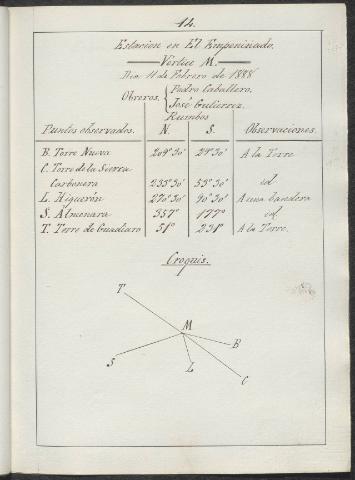 14.
Estacion en El Empeninado.
Vértice M.
Dia 11 de Febrero de 1888
Obreros. { Pedro Caballero.
José Gutierrez.
Rumbos
Puntos observados. N. S. Observaciones.
B. Torre Nueva 209°30' 29°30' A la Torre
C. Torre de la Sierra
Carbonera 233°30' 53°30' id
L. Higueron 270°30' 90°30' A una bandera
S. Almenara 357° 177° id.
T. Torre de Guadiaro 51° 231° A la Torre.
Croquis.
T
M
B
S
L
C